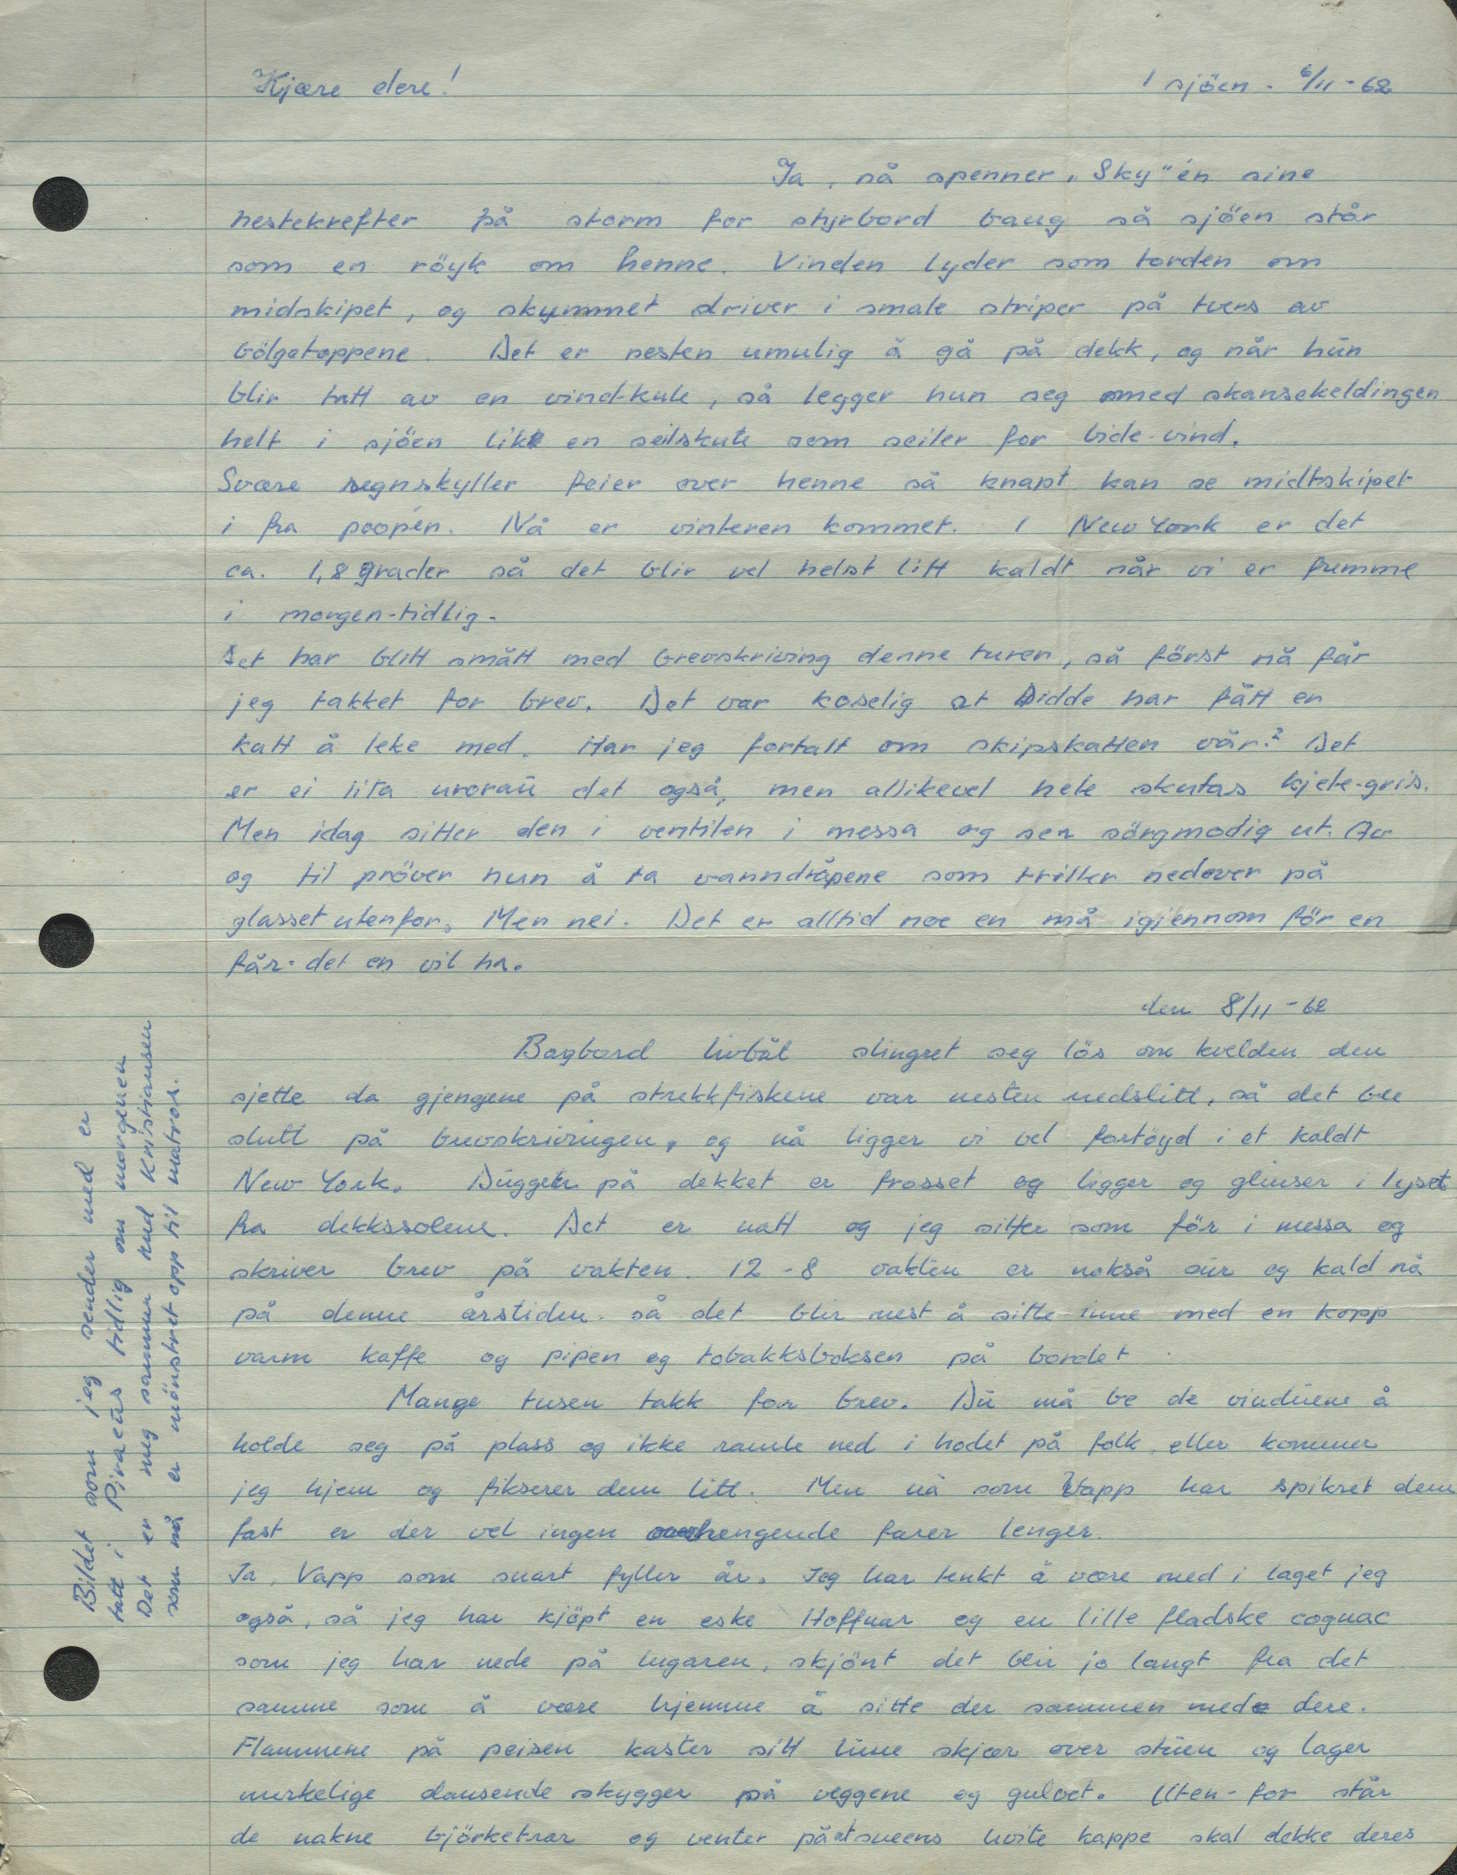 Kjære dere!
I sjöen. 6/11-62
Ja, så spenner „Sky"én sine
hestekrefter på storm for styrbord baug så sjöen står
som en röyk om henne. Vinden lyder som torden om
midskipet, og skummet driver i smale striper på tvers av
bölgetoppene. Det er nesten umulig å gå på dekk, og når hun
blir tatt av en vind-kule, så legger hun seg med skansekeldingen
helt i sjöen lik en seilskute som seiler for bide-vind.
Svære regnskyller feier over henne så knapt kan se midtskipet
i fra poopen. Nå er vinteren kommet. I New York er det
ca. 1,8 grader så det blir vel helst litt kaldt når vi er fremme
i morgen-tidlig.
Det har blitt smått med brevskriving denne turen, så först nå får
jeg takket for brev. Det var koselig at Didde har fått en
katt å leke med. Har jeg fortalt om skipskatten vår? Det
er ei lita urorau det også, men allikevel hele skutas kjele-gris.
Men idag sitter den i ventilen i messa og ser sörgmodig ut. Av
og til pröver hun å ta vanndråpene som triller nedover på
glasset utenfor. Men nei. Det er alltid noe en må igjennom för en
får det en vil ha.
den 8/11-62
Bagbord livbåt slingret seg lös om kvelden den
sjette da gjengene på strekkfiskene var nesten nedslitt, så det ble
slutt på brevskrivingen, og nå ligger vi vel fortöyd i et kaldt
New York. Duggen på dekket er frosset og ligger og glinser i lyset
fra dekkssolene. Det er natt og jeg sitter som för i messa og
skriver brev på vakten. 12-8 vakten er nokså sur og kald nå
på denne årstiden. så det blir mest å sitte inne med en kopp
varm kaffe og pipen og tobakksboksen på bordet.
Mange tusen takk for brev. Du må be de vinduene å
holde seg på plass og ikke ramle ned i hodet på folk eller kommer
jeg hjem og fikserer dem litt. Men nå som Vapp har spikret dem
fast er der vel ingen overhengende farer lenger.
Ja, Vapp som snart fyller år. Jeg har tenkt å være med i laget jeg
også, så jeg har kjöpt en eske Hoffnar og en lille fladske cognac
som jeg har nede på lugaren, skjönt det blir jo langt fra det
samme som å være hjemme å sitte der sammen med dere.
Flammene på peisen kaster sitt lune skjær over stuen og lager
merkelige dansende skygger på veggene og gulvet. Uten-for står
de nakne björketrær og venter på at sneens hvite kappe skal dekke deres
Bildet som jeg sender med er
tatt i Piraeus tidlig om morgenen
Det er meg sammen med Kristiansen
som nå er mönstret opp til matros.